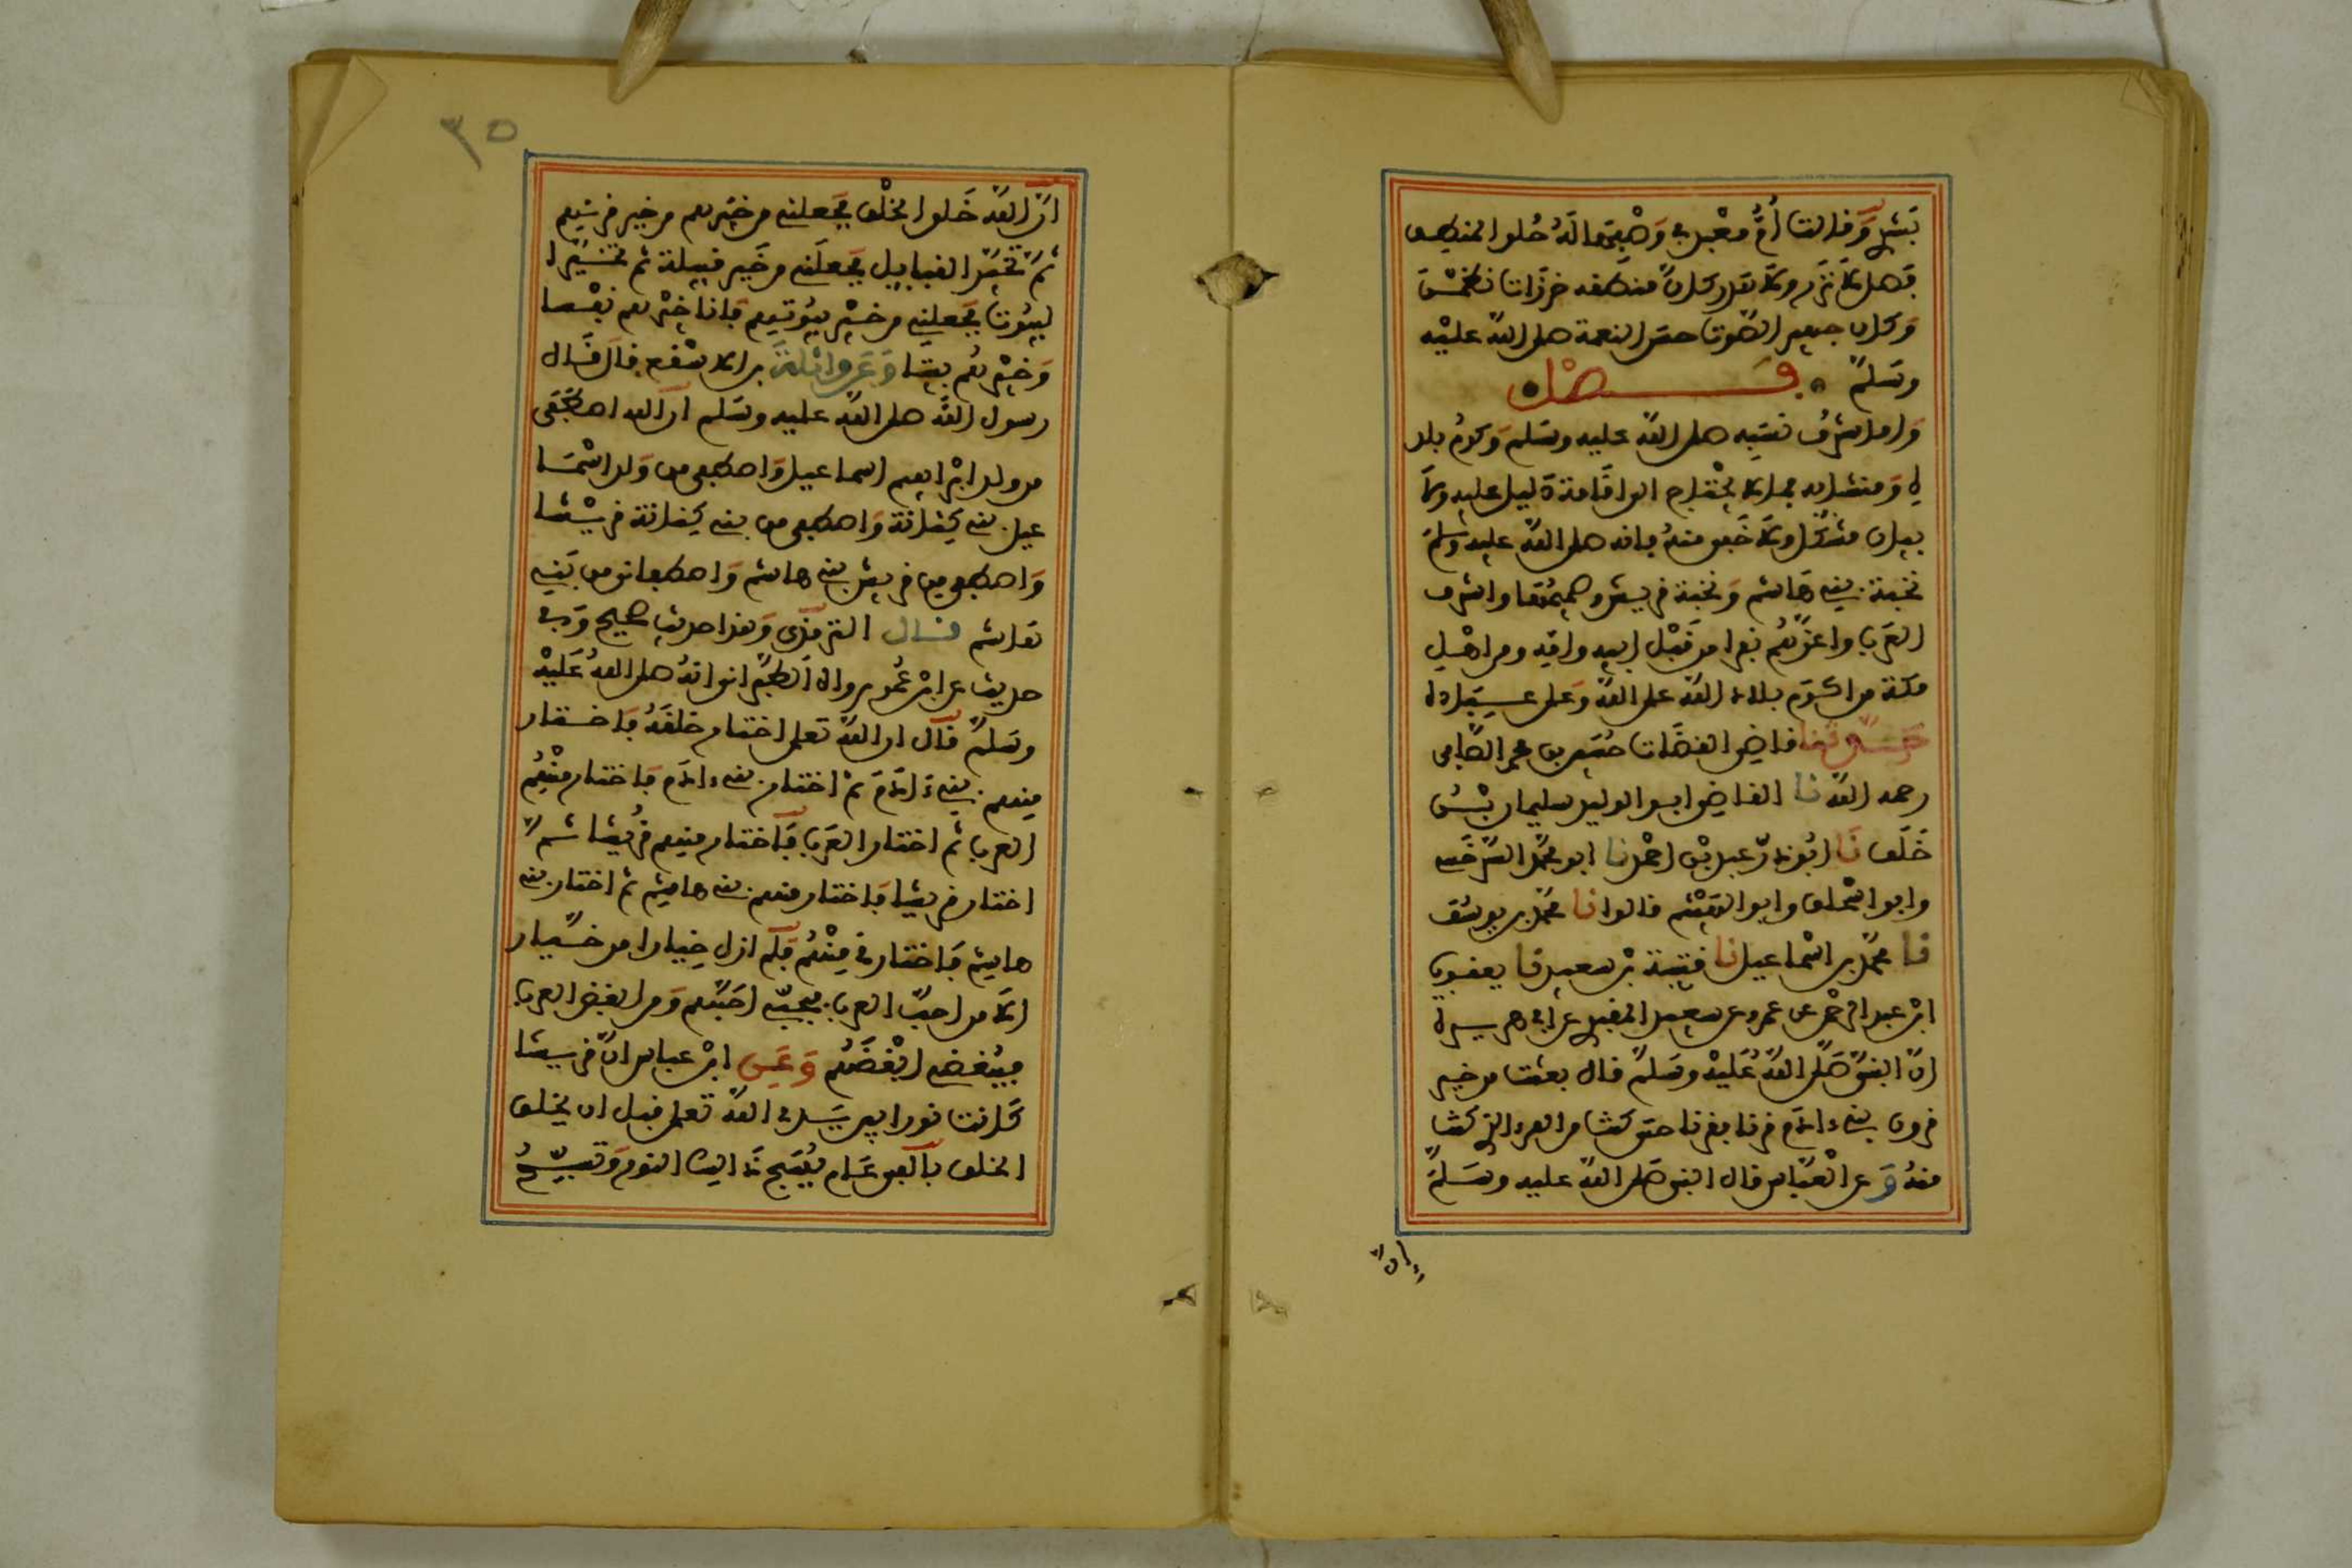 بشر وقالت أم معبد في وصفها له حلو المنطق
فصل لا نزر ولا هذر كان منطقه خرزات نظمن
وكان جهير الصوت حسن النغمة صلى الله عليه
وسلم فصل
واما شرف نسبه صلى الله عليه وسلم وكرم بلد
ه ومنشايه فما لا يحتاج الى اقامة دليل عليه ولا
بيان مشكل ولا خفى منه فانه صلى الله عليه وسلم
نخبة بني هاشم ونخبة قريش وصميمها واشرف
العرب واعزهم نفرا من قبل ابيه وامه ومن اهل
مكة من اكرم بلاد الله على الله وعلى عباده
حدثنا قاضي القضات حسين بن محمد الصدفي
رحمه الله نا القاضي ابو الوليد سليمان بن
خلف نا ابو ذر عبد بن احمد نا ابو محمد السرخسي
وابو اسحاق وابو الهيثم قالوا نا محمد بن يوسف
نا محمد بن اسماعيل نا قتيبة بن سعيد نا يعقوب
ابن عبد الرحمن عن عمرو عن سعيد المقبري عن ابي هريرة
ان النبي صلى الله عليه وسلم قال بعثت من خير
قرون بني ءادم قرنا فقرنا حتى كنت من القرن الذي كنت
منه وعن العباس قال النبي صلى الله عليه وسلم
ان
٣٥
ان الله خلق الخلق فجعلني من خيرهم من خير قرنهم
ثم تخير القبايل فجعلني من خير قبيلة ثم تخير ا
لبيوت فجعلني من خير بيوتهم فانا خيرهم نفسا
وخيرهم بيتا وعن واثلة بن الاسقع قال قال
رسول الله صلى الله عليه وسلم ان الله اصطفى
من ولد ابراهيم اسماعيل واصطفى من ولد اسما
عيل بني كنانة واصطفى من بني كنانة قريشا
واصطفى من قريش بني هاشم واصطفاني من بني
هاشم قال الترمذي وهذا حديث صحيح وفي
حديث عن ابن عمر رواه الطبراني انه صلى الله عليه
وسلم قال ان الله تعلى اختار خلقه فاختار
منهم بني ءادم ثم اختار بني ءادم فاختار منهم
العرب ثم اختار العرب فاختار منهم قريشا ثم
اختار قريشا فاختار منهم بني هاشم ثم اختار بني
هاشم فاختارني منهم فلم ازل خيارا من خيار
الا من احب العرب فبحبي احبهم ومن ابغض العرب
فببغضي ابغضهم وعن ابن عباس ان قريشا
كانت نورا بين يدي الله تعلى قبل ان يخلق
الخلق بالفي عام يسبح ذالك النور وتسبح